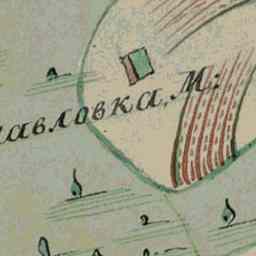 павловка, М:
2